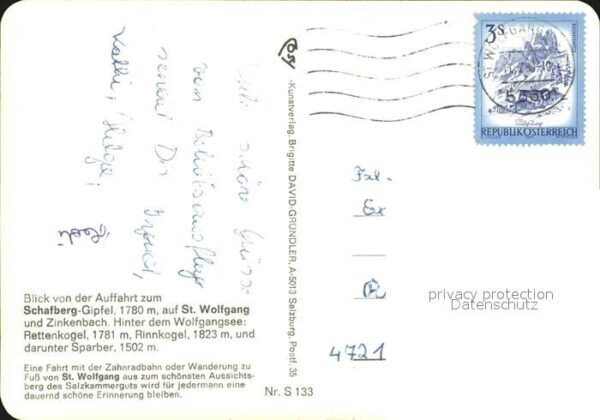 Viele schöne Grüsse
vom Betriebsausflug
sendet Dir Ingrid,
Kathi, Helga,
Blick von der Auffahrt zum
Schafberg-Gipfel, 1780 m, auf St. Wolfgang
und Zinkenbach. Hinter dem Wolfgangsee:
Rettenkogel, 1781 m, Rinnkogel, 1823 m, und
darunter Sparber, 1502 m.
Eine Fahrt mit der Zahnradbahn oder Wanderung zu
Fuß von St. Wolfgang aus zum schönsten Aussichts-
berg des Salzkammerguts wird für jedermann eine
dauernd schöne Erinnerung bleiben.
Nr. S 133
-Kunstverlag, Brigitte DAVID-GRÜNDLER, A-5013 Salzburg, Postf. 35
3S
ST. WOLFGANG
REPUBLIK ÖSTERREICH
Frl.
4721
privacy protection
Datenschutz